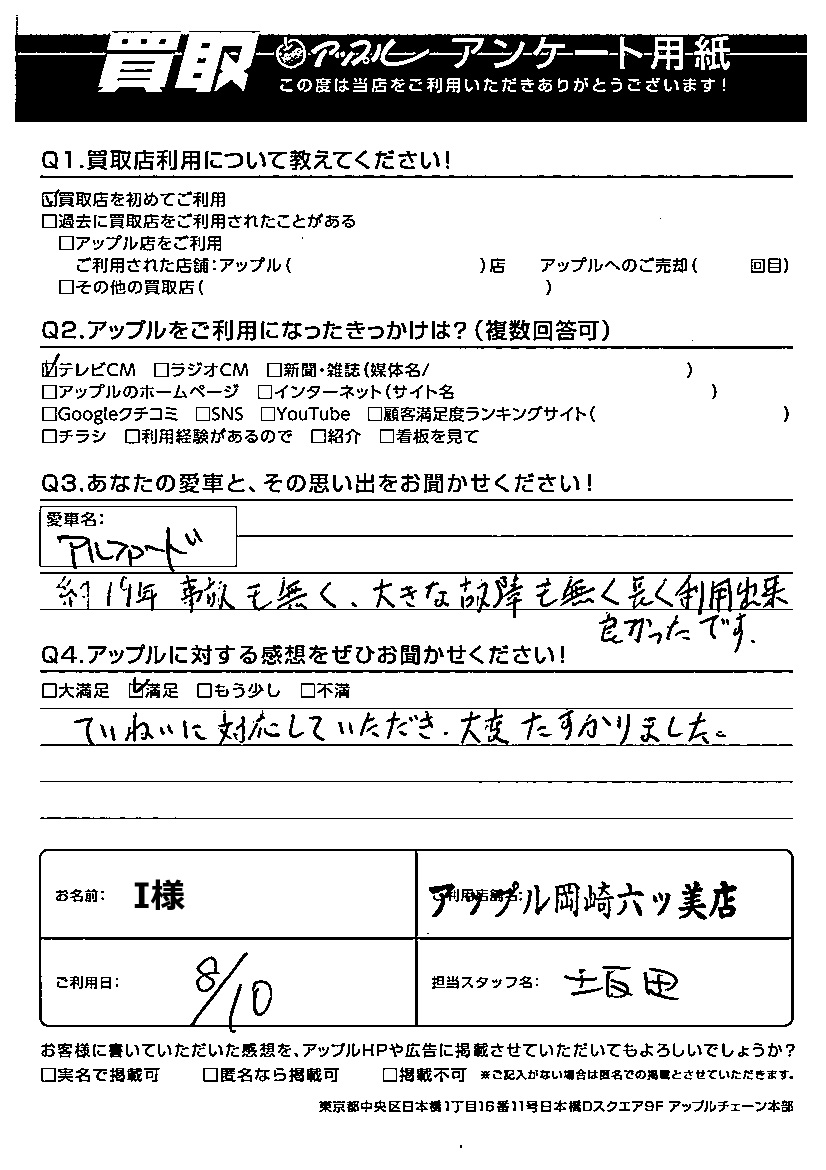 買取 アップル アンケート用紙
この度は当店をご利用いただきありがとうございます!
Q1.買取店利用について教えてください!
☑買取店を初めてご利用
□過去に買取店をご利用されたことがある
□アップル店をご利用
ご利用された店舗:アップル( )店 アップルへのご売却( 回目)
□その他の買取店( )
Q2.アップルをご利用になったきっかけは?(複数回答可)
☑テレビCM □ラジオCM □新聞・雑誌(媒体名/ )
□アップルのホームページ □インターネット(サイト名 )
□Googleクチコミ □SNS □YouTube □顧客満足度ランキングサイト( )
□チラシ □利用経験があるので □紹介 □看板を見て
Q3.あなたの愛車と、その思い出をお聞かせください!
愛車名:
アルファード
約19年 事故も無く、大きな故障も無く長く利用出来
良かったです.
Q4.アップルに対する感想をぜひお聞かせください!
□大満足 ☑満足 □もう少し □不満
ていねいに対応していただき.大変たすかりました。
お名前: I様 ご利用店舗名: アップル岡崎六ッ美店
ご利用日: 8/10 担当スタッフ名: 坂田
お客様に書いていただいた感想を、アップルHPや広告に掲載させていただいてもよろしいでしょうか?
□実名で掲載可 □匿名なら掲載可 □掲載不可 ※ご記入がない場合は匿名での掲載とさせていただきます。
東京都中央区日本橋1丁目16番11号日本橋Dスクエア9F アップルチェーン本部